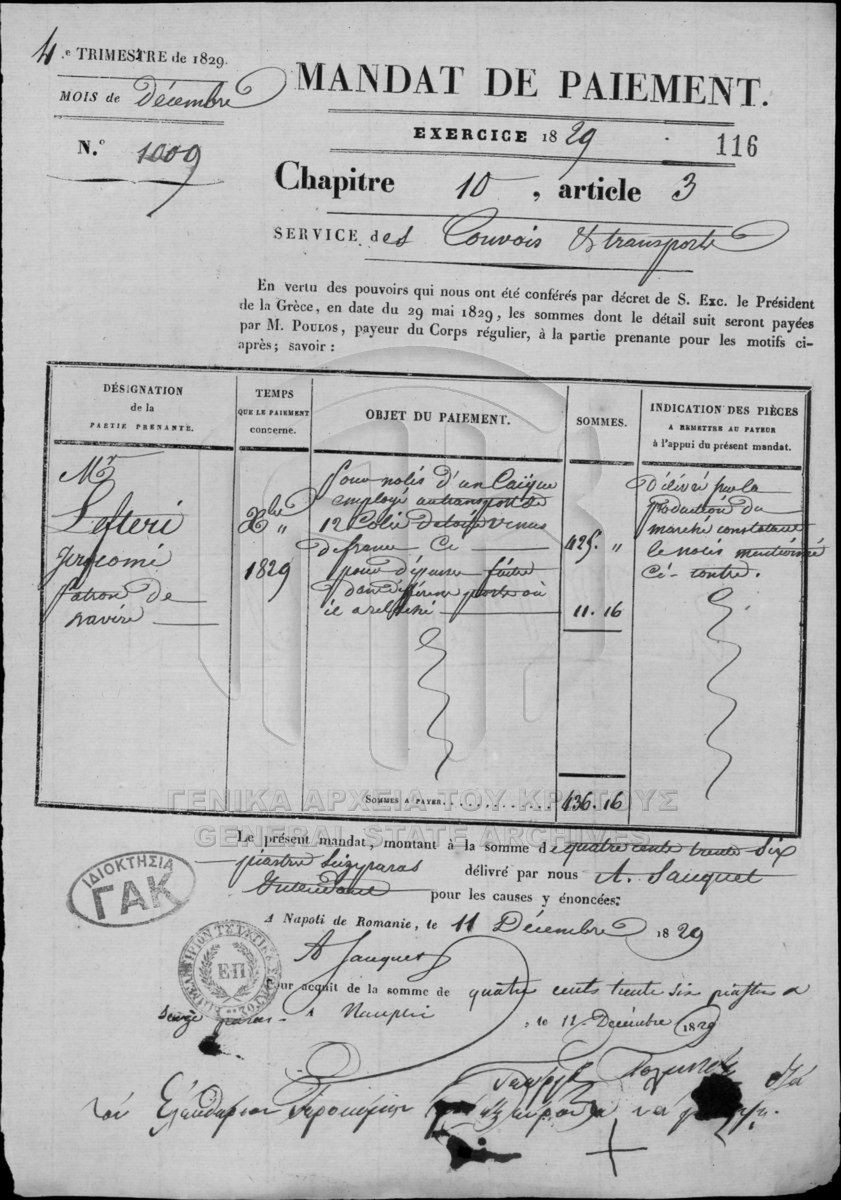 4.e TRIMESTRE de 1829.
MOIS de Décembre
N.o 1009
MANDAT DE PAIEMENT.
EXERCICE 1829
116
Chapitre 10, article 3
SERVICE des Convois & transports
En vertu des pouvoirs qui nous ont été conférés par décret de S. Exc. le Président
de la Grèce, en date du 29 mai 1829, les sommes dont le détail suit seront payées
par M. POULOS, payeur du Corps régulier, à la partie prenante pour les motifs ci-
après; savoir :
DÉSIGNATION
de la
PARTIE PRENANTE.
TEMPS
QUE LE PAIEMENT
concerne.
OBJET DU PAIEMENT.
SOMMES.
INDICATION DES PIÈCES
A REMETTRE AU PAYEUR
à l'appui du présent mandat.
Mr
Lefteri
patron de
navire
Xbre
1829
Pour nolis d'un Caïque
employé au transport de
12 Colis venus
de france Ci
425. "
pour dépense faite
dans différens ports où
il a relâché
11. 16
Délivré sur la
production du
marché constatant
le nolis mentionné
Ci-contre.
SOMMES A PAYER.
436.16
Le présent mandat, montant à la somme de quatre cents trente six
piastres Seize paras délivré par nous A. Jauquet
Intendant pour les causes y énoncées;
A NAPOLI DE ROMANIE, le 11 Décembre 1829
A Jauquet
Pour acquit de la somme de quatre cents trente six piastres
seize paras. A Nauplie, le 11 Décembre 1829
διά
τον
να
ΓΕΝΙΚΑ ΑΡΧΕΙΑ ΤΟΥ ΚΡΑΤΟΥΣ
GENERAL STATE ARCHIVES
ΙΔΙΟΚΤΗΣΙΑ
ΓΑΚ
ΕΠ